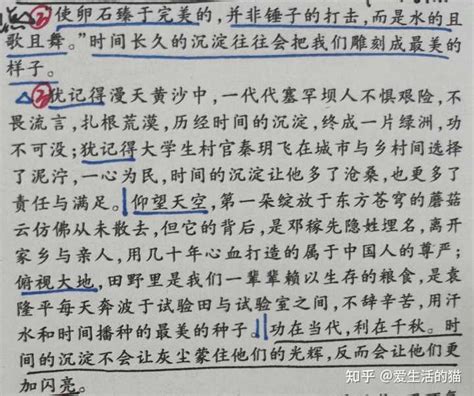 ②使卵石臻于完美的，并非锤子的打击，而是水的且
歌且舞。”时间长久的沉淀往往会把我们雕刻成最美的
样子。
②犹记得漫天黄沙中，一代代塞罕坝人不惧艰险，不
畏流言，扎根荒漠，历经时间的沉淀，终成一片绿洲，功
不可没；犹记得大学生村官秦玥飞在城市与乡村间选择
了泥泞，一心为民，时间的沉淀让他多了沧桑，也更多了
责任与满足。仰望天空，第一朵绽放于东方苍穹的蘑菇
云仿佛从未散去，但它的背后，是邓稼先隐姓埋名，离开
家乡与亲人，用几十年心血打造的属于中国人的尊严；
俯视大地，田野里是我们一辈辈赖以生存的粮食，是袁
隆平每天奔波于试验田与试验室之间，不辞辛苦，用汗
水和时间播种的最美的种子。功在当代，利在千秋。时
间的沉淀不会让灰尘蒙住他们的光辉，反而会让他们更
加闪亮。
知乎 @爱生活的猫